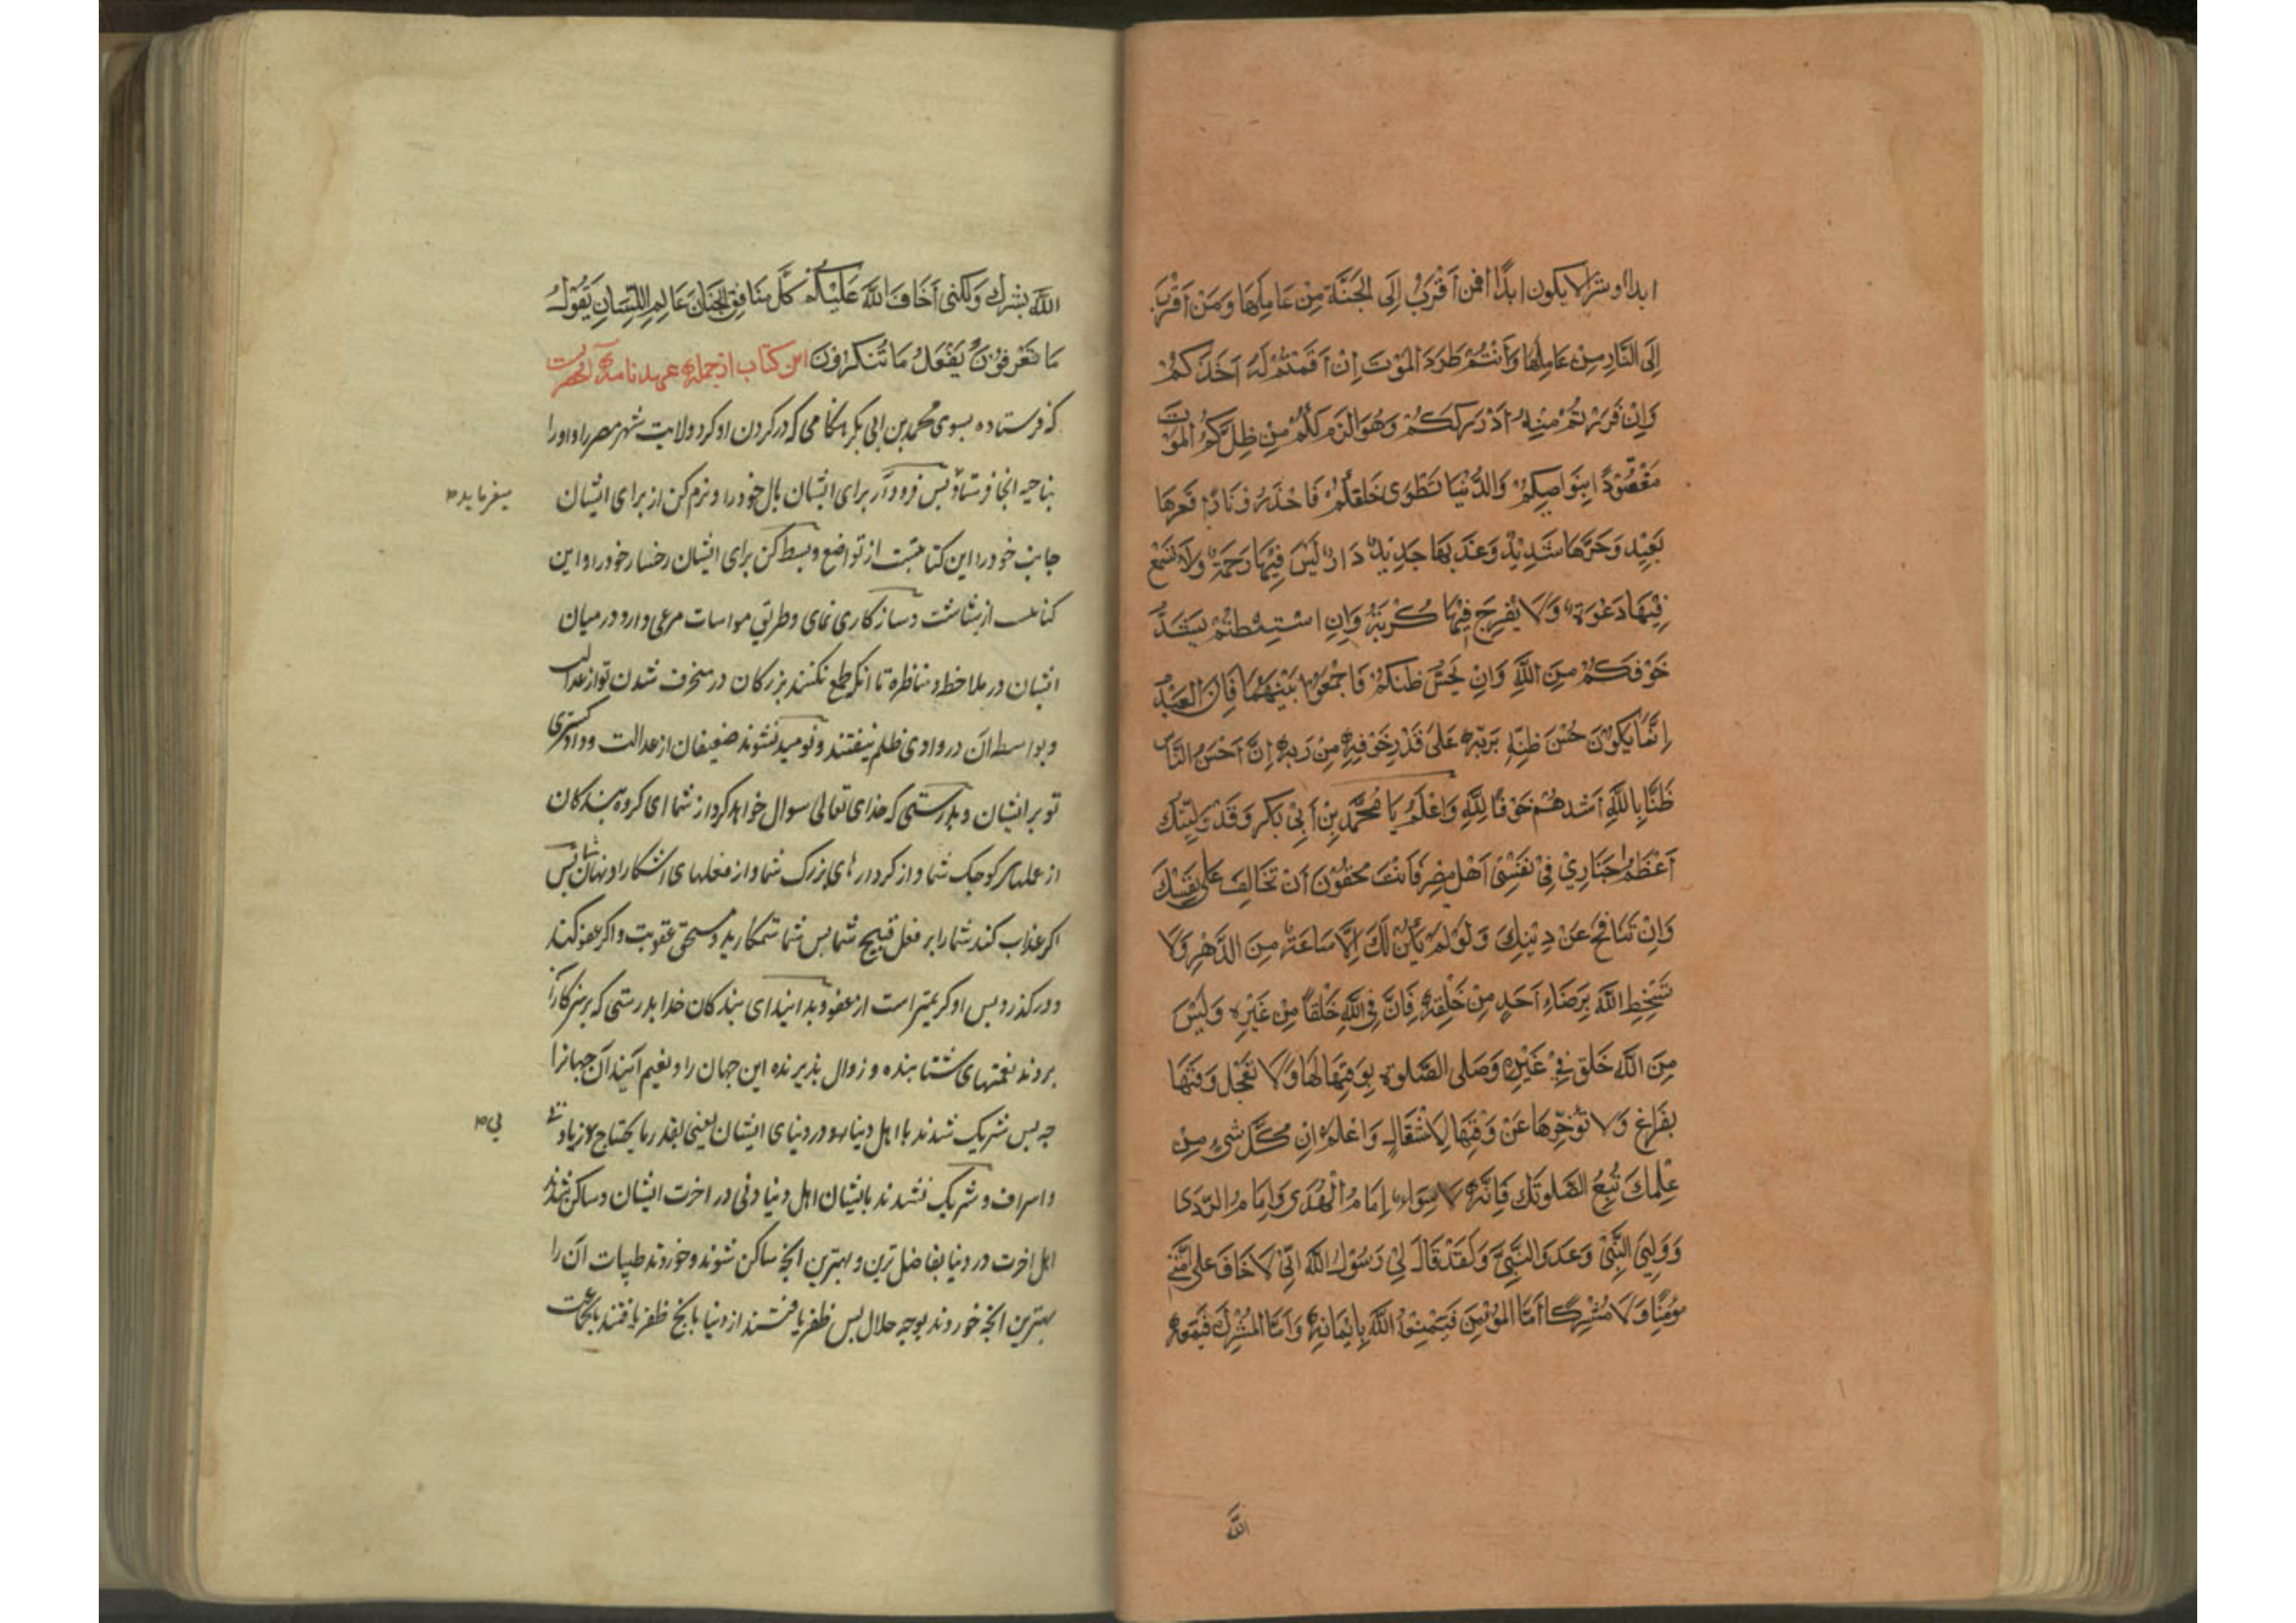 ابدا او شر لا یکون ابدًا افمن أَقْرَبُ إِلَى الجَنَّةِ مِنْ عَامِلِهَا وَمَنْ أَقْرَبَ
إِلَى النَّارِ مِنْ عَامِلِهَا وَأَنْتُمْ طَرَدَ المَوْتَ إِنْ أَقَمْتُمْ لَهُ أَخَذَكُمْ
وَإِنْ فَرَرْتُمْ مِنْهُ أَدْرَكَكُمْ وَهُوَ الزَم لَكُمْ مِنْ ظِلِّكُمْ المَوْت
مَعْقُودًا بِنَوَاصِيكُمْ وَالدُّنْيَا تَطْوِى خَلفكُمْ فَاحْذَرُوا نَارًا قَعرهَا
بَعِيْد وَحَرّهَا شَدِيْدٌ وَعَذَابهَا جَدِيْدٌ دَارٌ لَيْسَ فِيْهَا رَحَمَةٌ وَلَا تَسْمَعُ
فِيْهَا دَعْوَة وَلَا يُفْرِجَ فِيْهَا كُرْبَةٌ وَإِنِ اسْتَطعْتُمْ يَشْتَدَّ
خَوْفكُمْ مِنَ اللَّهِ وَانْ يَحْسُنَ ظَنكُمْ فَاجْمعُوا بَيْنَهُمَا فَاِنَّ العَبْدَ
إِنَّمَا يَكُوْنَ حُسْنَ ظَنِّهِ بِرَبِّهِ عَلَى قَدْرِ خَوْفِهِ مِنْ رَبِهِ إِنَّ أَحْسَنُ النَّاس
ظَنًّا بِاللَّهِ أَشدهُمْ خَوْفًا لِلَّهِ وَاعْلَمْ يَا مُحَمَّد بنِ أَبِيْ بَكر وَقَدْ وَلّيْتكَ
أَعْظَمُ اجنَادِيْ فِيْ نَفْسِيْ اَهْل مِصْر فَانْتَ محقُوْن أَنْ تُخَالِفَ عَلَى نَفْسِكَ
وَانْ تَنَافِحَ عَنْ دِيْنِكَ وَلَوْ لَمْ يَكُنْ لَكَ إِلَّا سَاعَةٌ مِنَ الدَّهْرِ وَلَا
تَسْخِطِ اللَّهَ بِرَضَاءِ أَحَدٍ مِنْ خَلْقِهِ فَانَّ فِى اللَّهِ خَلْفًا مِنْ غَيْرِهِ وَلَيْسَ
مِنَ اللَّهِ خَلَق فِيْ غَيْرِهِ وَصَلِى الصَّلوة بِوَقْتِهَا لَهَا وَلَا تعجل وَقتهَا
بِفَرَاغ وَلَا تُؤخّرهَا عَنْ وَقْتِهَا لِاشْتغَال وَاعْلَمْ انّ كُلَّ شَيءٍ مِنْ
عَلمك تَبِعُ لصَلوتكَ فَإِنَّهُ لَا سِوَاء إِمَامُ الْهُدَى وَإِمَامُ الرّدَى
وَوَلِيّ النَّبِيّ وَعَدوّ النَّبِيّ وَلَقَدْ قَالَ لِيْ رَسُوْلُ اللَّهِ انِّيْ لَا خَافَ عَلى أمّتِيْ
مؤمِنًا وَلَا مُشْرِكًا أَمَّا المؤمِن فَيمْنعُهُ اللَّهُ بِإِيْمَانِهِ وَأَمَّا المُشْرِكُ فَيقمَعُهُ
اللَّهُ
اللَّهُ بِشركِهِ وَلَكِنِّى أَخَافُ اللَّهَ عَلَيْكُمْ كُلَّ مُنَافِقِ الجَنَان عَالِمِ اللِّسَانِ يَقُوْلُ
مَا تَعْرِفُوْنَ يَفْعَلُ مَا تُنْكِرُوْنَ این کتاب از جمله عهدنامه آنحضرت
که فرستاده بسوی محمد بن ابی بکر هنگامی که در کردن او کرد ولایت شهر مصر را و او را
بناحیه انجا فرستاد پس فرود آر برای ایشان بال خود را و نرم کن از برای ایشان
میفرماید
جانب خود را این کنایتست از تواضع و بسط کن برای ایشان رخسار خود را و این
کنایت از بشاشت و سازکاری نمای و طریق مواسات مرعی دارد در میان
ایشان در ملاحظه و مناظره تا انکه طمع نکنند بزرکان در منحرف شدن تو از عدالت
و بواسطه آن در وادی ظلم نیفتند و نومید نشوند ضعیفان از عدالت و دادکستری
تو بر ایشان و بدرستی که خدای تعالی سوال خواهد کرد از شما ای کروه بندکان
از عملهای کوچک شما و از کردارهای بزرک شما و از فعلهای اشکارا و نهان شما پس
اکر عذاب کند شما را بر فعل قبیح شما پس شما ستمکارید و مستحق عقوبت و اکر عفو کند
و درکذرد پس او کریمتر است از عفو و بدانید ای بندکان خدا بدرستی که پرهیزکاران
بردند نعمتهای شتابنده و زوال پذیرنده این جهان را و نعیم آینده آن جهان را
چه پس شریک شدند با اهل دنیا در دنیای ایشان یعنی بقدر ما یحتاج زیادتی
بی
و اسراف و شریک نشدند بایشان اهل دنیا دنی در اخرت ایشان و ساکن شدند
اهل اخرت در دنیا بفاضل ترین و بهترین انچه ساکن شوند و خوردند طیبات آن را
بهترین انچه خوردند بوجه حلال پس ظفر یافتند از دنیا بانچ ظفر یافتند